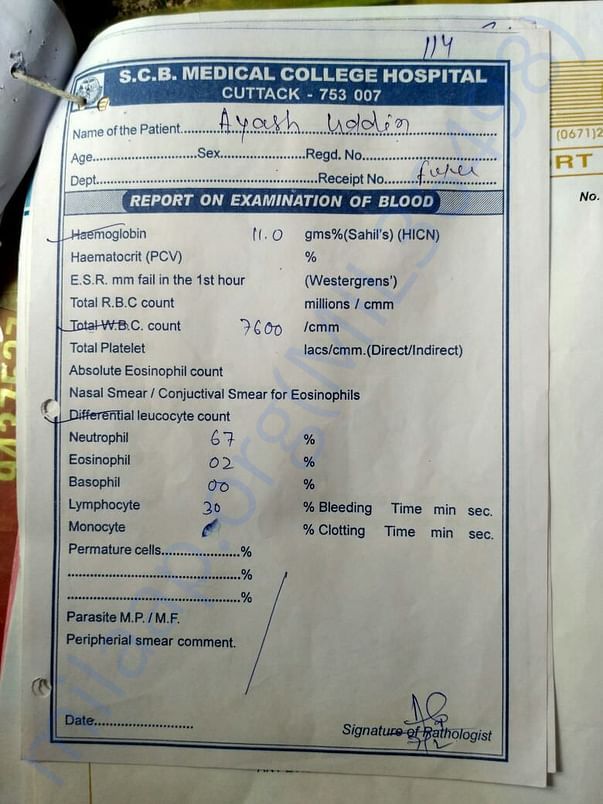 114
S.C.B. MEDICAL COLLEGE HOSPITAL
CUTTACK - 753 007
(0671)2
Name of the Patient Ayash Uddin
RT
Age Sex Regd. No.
Dept. Receipt No.
No.
REPORT ON EXAMINATION OF BLOOD
Haemoglobin 11.0 gms%(Sahil's) (HICN)
Haematocrit (PCV) %
E.S.R. mm fail in the 1st hour (Westergrens')
Total R.B.C count millions / cmm
Total W.B.C. count 7600 /cmm
Total Platelet lacs/cmm.(Direct/Indirect)
Absolute Eosinophil count
Nasal Smear / Conjuctival Smear for Eosinophils
Differential leucocyte count
Neutrophil 67 %
Eosinophil 02 %
Basophil 00 %
Lymphocyte 30 % Bleeding Time min sec.
Monocyte % Clotting Time min sec.
Permature cells %
%
%
Parasite M.P. / M.F.
Peripherial smear comment.
Date
Signature of Pathologist